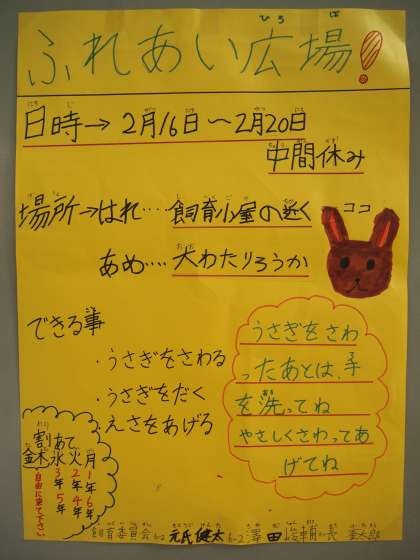 ふれあい広場!
日時→2月16日〜2月20日
中間休み
場所→はれ····飼育小屋の近く
ココ
あめ····大わたりろうか
できる事
・うさぎをさわる
・うさぎをだく
・えさをあげる
うさぎをさわ
ったあとは、手
を洗ってね
やさしくさわってあ
げてね
割りあて
月 1年6年
火 2年4年
水 3年5年
木金
・自由に来て下さい
飼育委員会 6-2元氏健太 6-2澤田